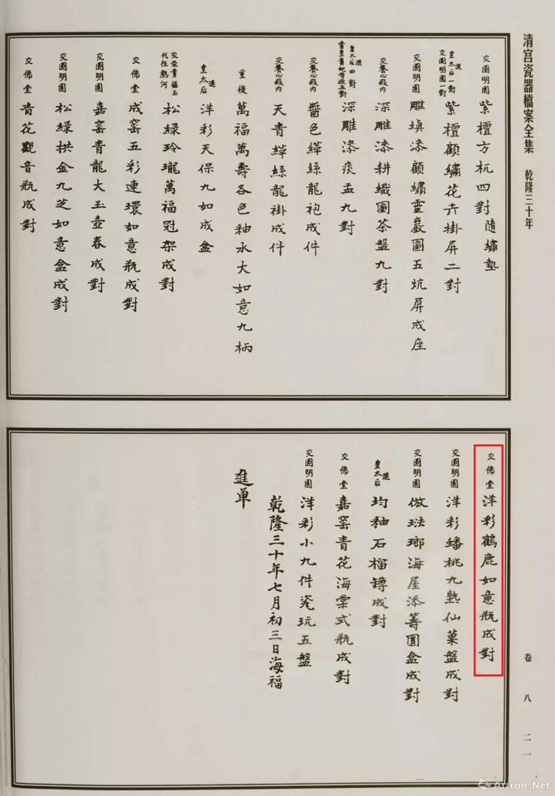 清宫瓷器檔案全集 乾隆三十年
交圓明園 紫檀方杌四對 隨繡墊
進 皇太后一對 交圓明園一對 紫檀顧繡花卉掛屏二對
交圓明園 雕填漆顧繡靈巖圖五炕屏成座
交養心殿內 深雕漆耕織圖茶盤九對
進 皇太后四對 深雕漆痰盂九對
交養心殿內 醬色緙絲龍袍成件
交養心殿內 天青緙絲龍褂成件
萬福萬壽各色釉水大如意九柄
進 皇太后 洋彩天保九如成盒
松綠玲瓏萬福冠架成對
交佛堂 成窑五彩連環如意瓶成對
交圓明園 嘉窑青龍大玉壺春成對
交圓明園 松綠拱金九芝如意盒成對
交佛堂 青花觀音瓶成對
交佛堂 洋彩鶴鹿如意瓶成對
交圓明園 洋彩蟠桃九熟仙菓盤成對
交圓明園 倣琺瑯海屋添籌圓盒成對
進 皇太后 均釉石榴罇成對
交佛堂 嘉窑青花海棠式瓶成對
交圓明園 洋彩小九件瓷玩五盤
乾隆三十年七月初三日海福
進單
卷八 二一
Artron.Net